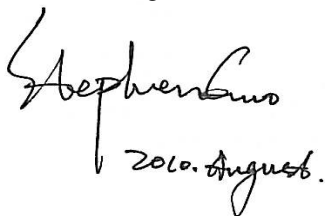 Stephen Guo
2010. August.